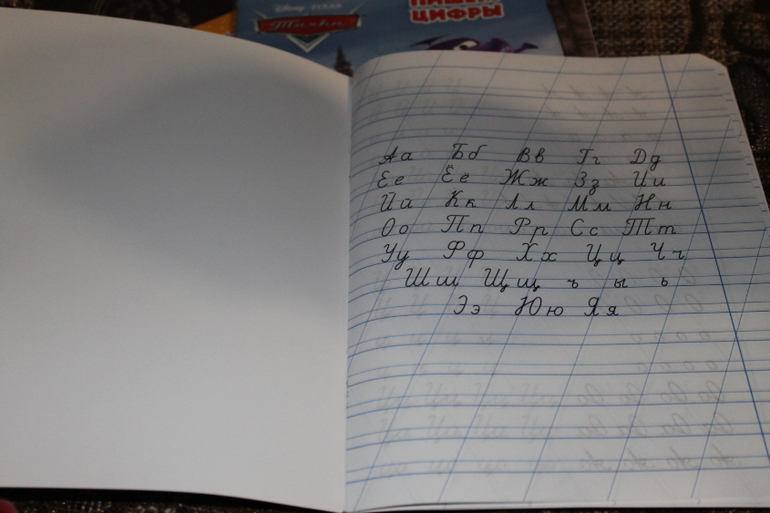 Disney · PIXAR
Тачки
ПИШЕМ
ЦИФРЫ
Аа Бб Вв Гг Дд
Ее Ёе Жж Зз Ии
Йа Кк Лл Мм Нн
Оо Пп Рр Сс Тт
Уу Фф Хх Цц Чч
Шш Щщ ъ ы ь
Ээ Юю Яя